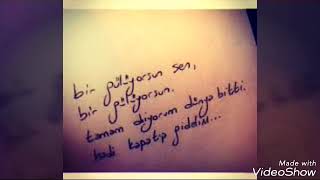 bir gülüyorsun sen,
bir gülüyorsun.
tamam diyorum dünya bitti.
hadi kapatıp gidelim...
Made with
VideoShow